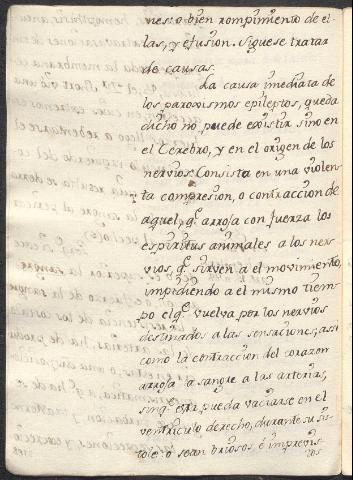 nes: o bien rompimiento de el-
las, y efusion. Siguese tratar
de causas.
La causa imediata de
los paroxismos epileptos, queda
dicho no puede existir sino en
el Cerebro, y en el origen de los
nervios: Consista en una violen-
ta compresion, o contraccion de
aquel, q.e arroja con fuerza los
espiritus animales a los ner-
vios, q.e sirven a el movimiento,
impidiendo a el mismo tiem-
po el q.e vuelva por los nervios
destinados a las sensaciones; assi
como la contraccion del corazon
arroja la sangre a las arterias,
sin q.e esta pueda vaciarse en el
ventriculo derecho, durante su sis-
tole: o sean briosos, è imprevis-
tos